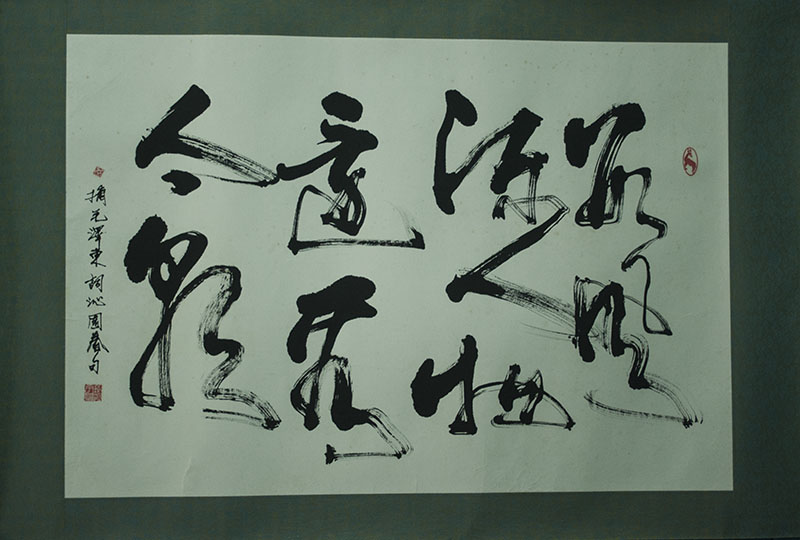 數風
流人物
還看
今朝
摘毛澤東詞沁園春句